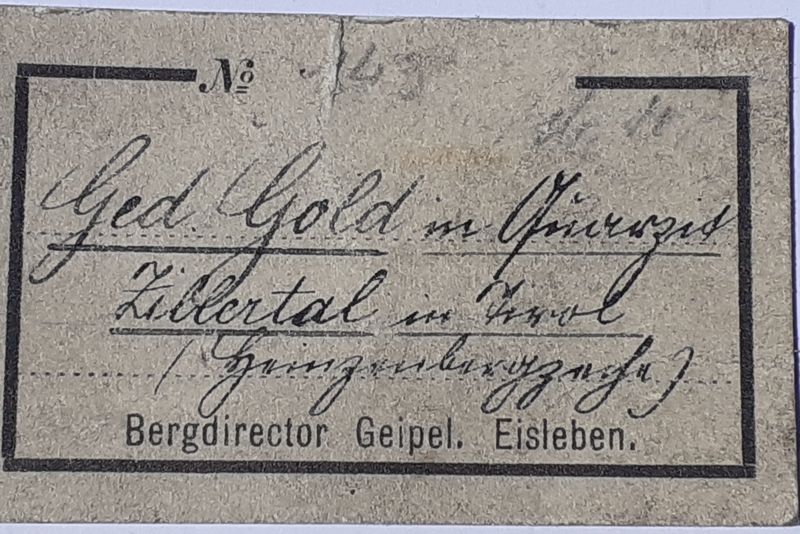 No 143
Ged. Gold in Quarzit
Zillertal in Tirol
(Heinzenbergzeche)
Bergdirector Geipel. Eisleben.